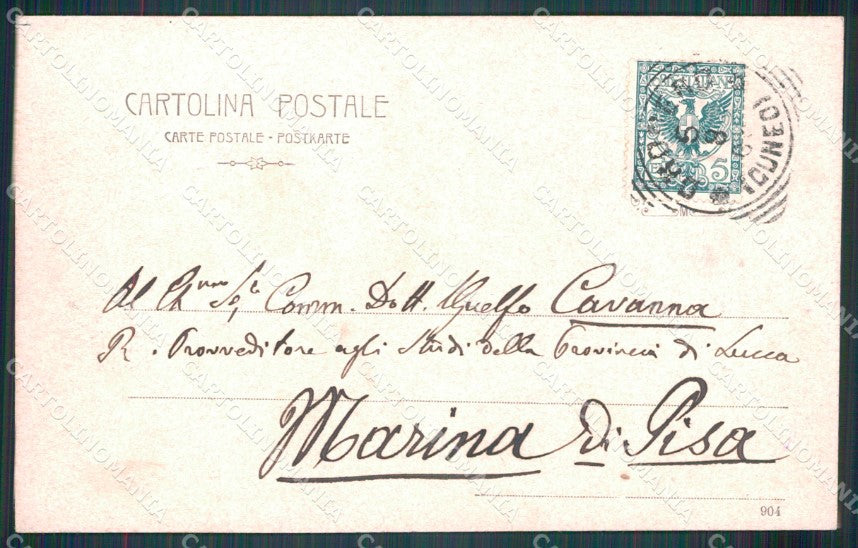 CARTOLINA POSTALE
CARTE POSTALE - POSTKARTE
5
(CUNEO)
5
8
Al Ch.mo Sig. Comm. Dott. Guelfo Cavanna
R. Provveditore agli Studi della Provincia di Lucca
Marina di Pisa
904
CARTOLINOMANIA